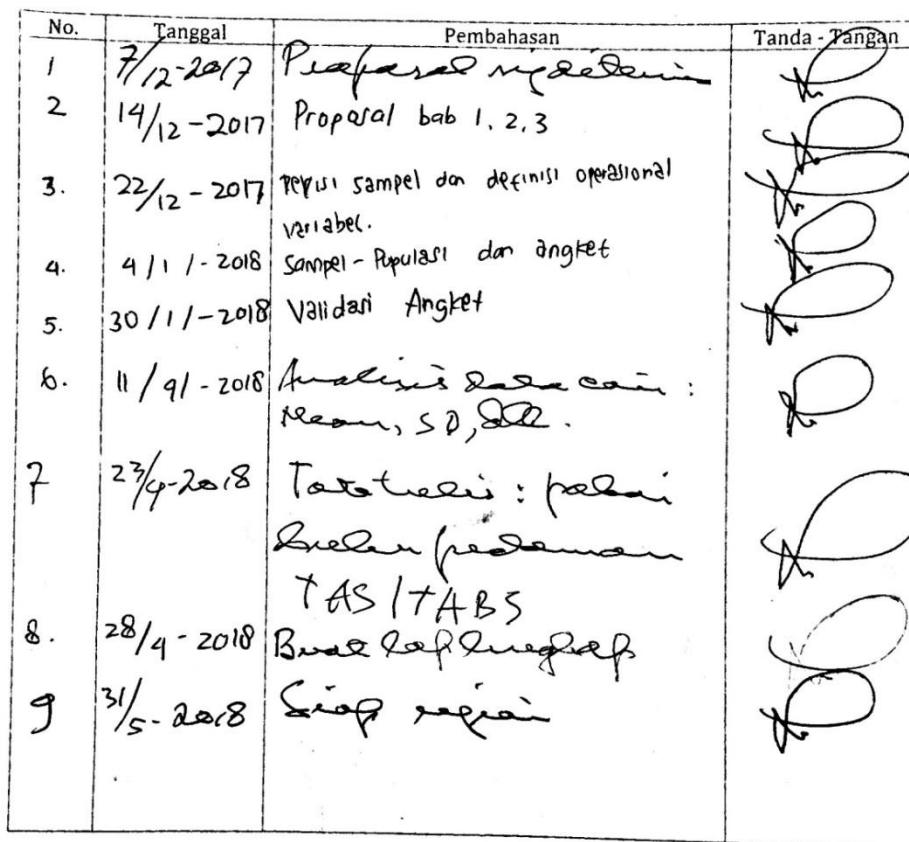 No. Tanggal Pembahasan Tanda - Tangan
1 7/12-2017 Proposal
2 14/12-2017 Proposal bab 1, 2, 3
3. 22/12-2017 revisi sampel dan definisi operasional
variabel.
4. 4/1/-2018 Sampel-Populasi dan angket
5. 30/1/-2018 Validasi Angket
6. 11/4/-2018 Analisis data cari :
Mean, SD, dll.
7 23/4-2018 Tata tulis : pakai
buku pedoman
TAS/TABS
8. 28/4-2018 Buat lap lengkap
9 31/5-2018 Siap